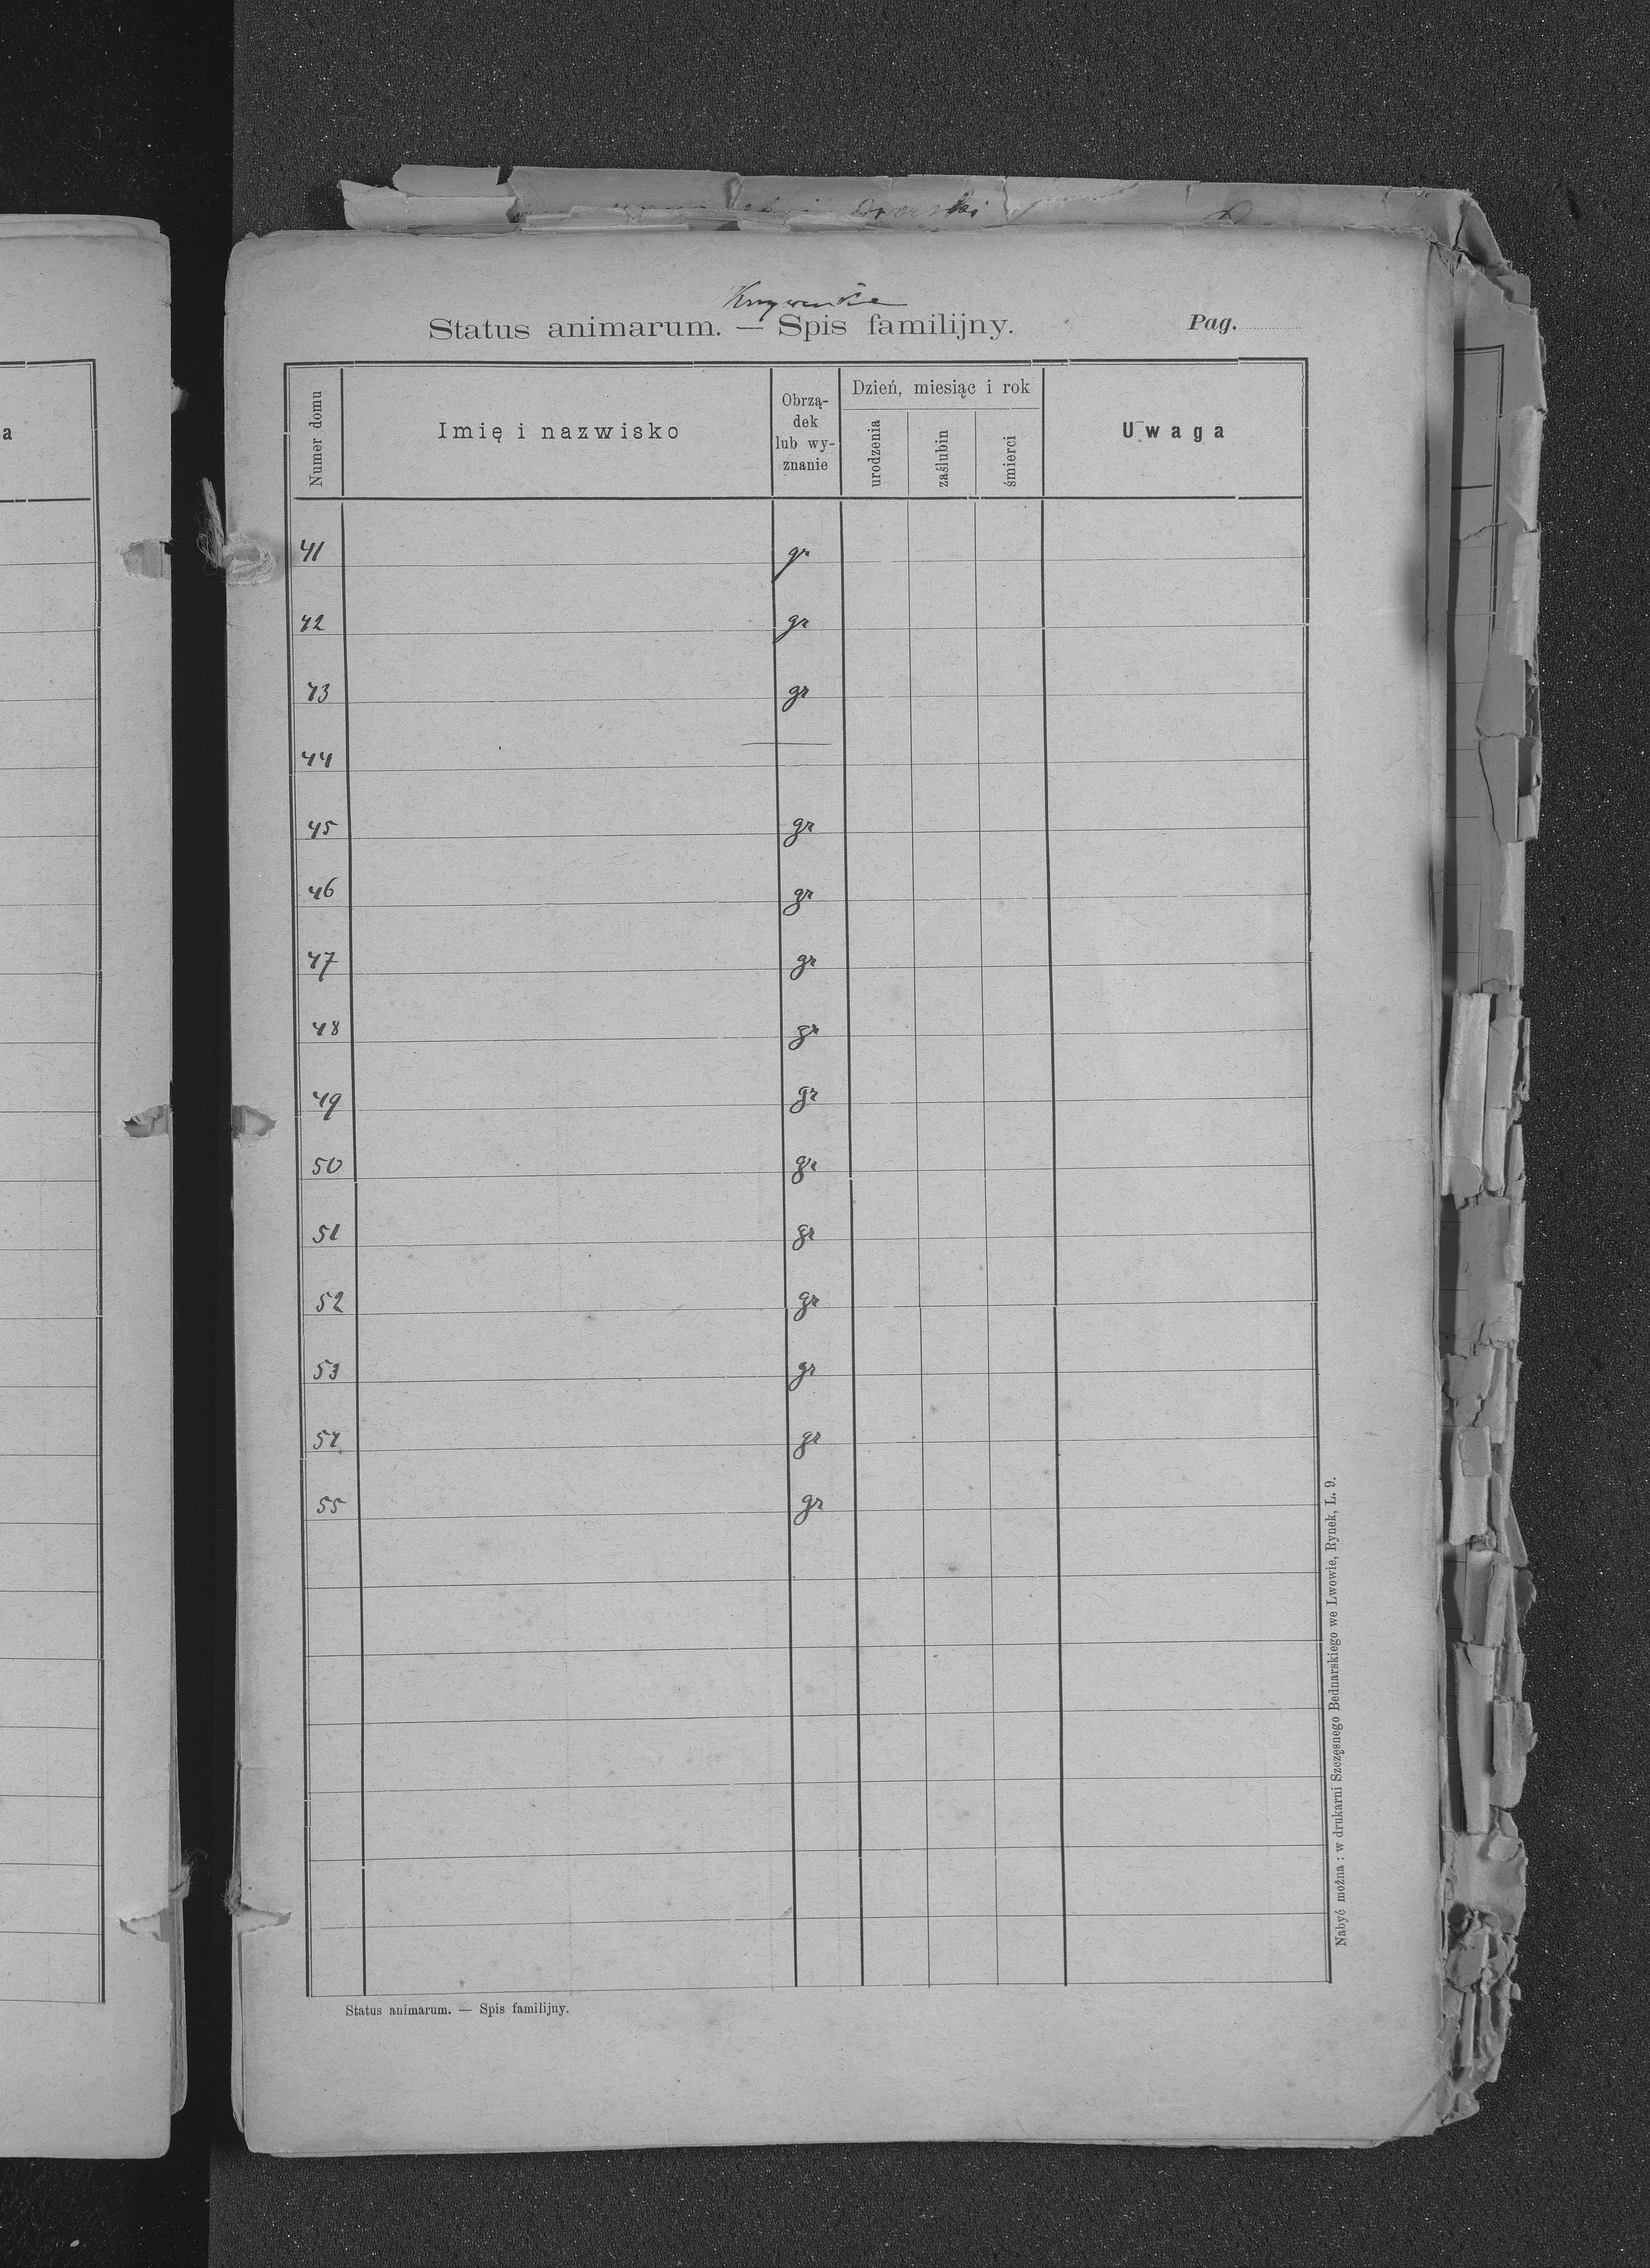 Status animarum. — Spis familijny.
Pag.
Numer domu
Imię i nazwisko
Obrzą-
dek
lub wy-
znanie
Dzień, miesiąc i rok
urodzenia
zaślubin
śmierci
Uwaga
a
41 gr
42 gr
43 gr
44 —
45 gr
46 gr
47 gr
48 gr
49 gr
50 gr
51 gr
52 gr
53 gr
54 gr
55 gr
Nabyć można: w drukarni Szczęsnego Bednarskiego we Lwowie, Rynek, L. 9.
Status animarum. — Spis familijny.